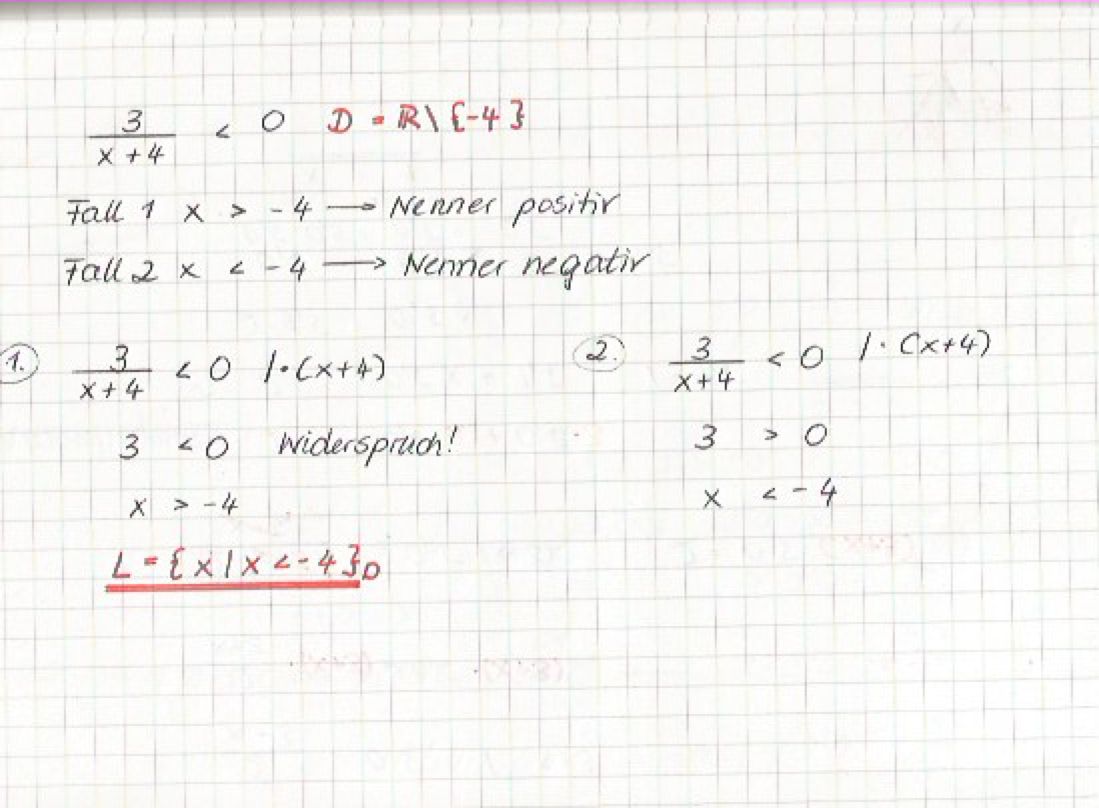 3/(x+4) < 0 D = ℝ\{-4}
Fall 1 x > -4 → Nenner positiv
Fall 2 x < -4 → Nenner negativ
1. 3/(x+4) < 0 |·(x+4)
3 < 0 Widerspruch!
x > -4
L = {x|x<-4}D
2. 3/(x+4) < 0 |·(x+4)
3 > 0
x < -4